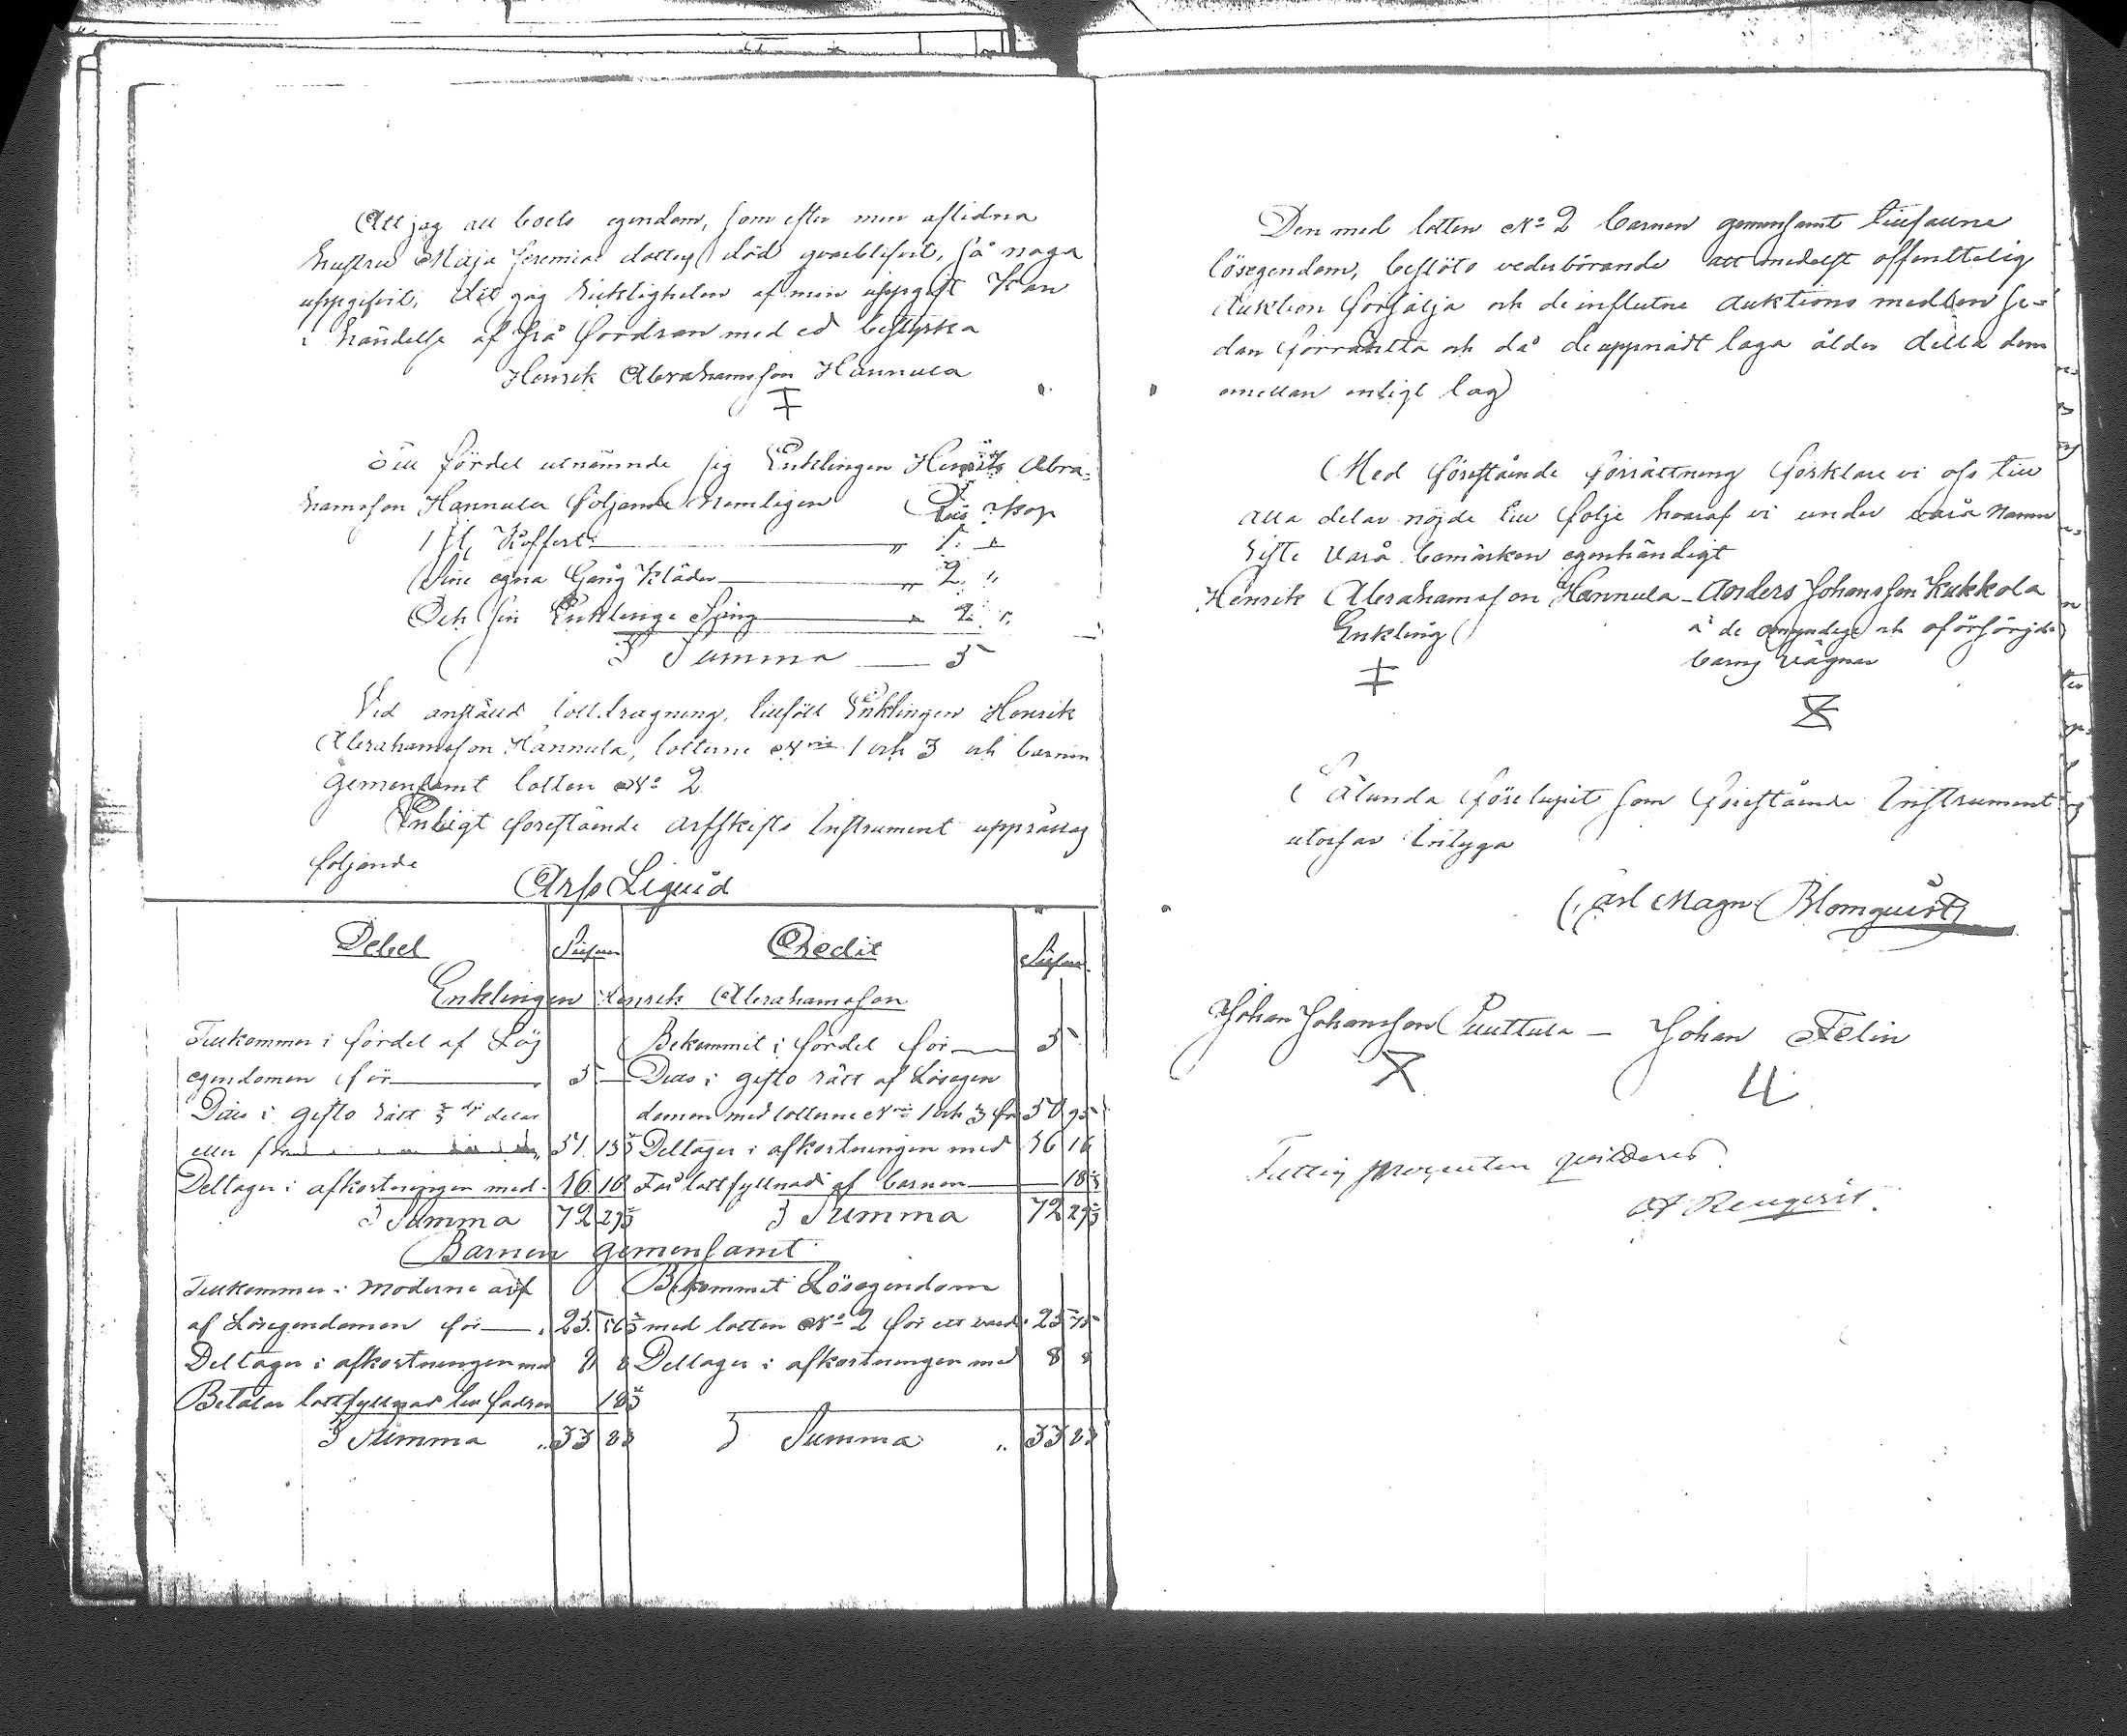 Att jag all boets egendom, som efter min aflidna
hustru Maja Jeremias dotters död qvarblifvit, så noga
uppgifvit, det jag ricktigheten af min uppgift kan
i händelse af så fordran med ed bestyrka
Henrik Abrahamsson Hannula
Till fördel utnämnde sig Enklingen Henrik Abra-
hamsson Hannula följande nemligen
1 st. Koffert 1.
Sine egna Gång Kläder 2. "
Och sin Enklings Säng 2. "
Summa 5
Vid anstäld lottdragning, tillföll Enklingen Henrik
Abrahamsson Hannula, lotterne No 1 och 3 och barnen
gemensamt lotten No 2.
Enligt förestående arfskifts Instrument upprättas
följande
Arfs Liquid
Debet Silfver Credit Silfver
Enklingen Henrik Abrahamsson
Tillkommer i fördel af Lös Bekommit i fördel för 5
egendomen för 5 Dito i gifto rätt af Lösegen
Dito i gifto rätt delar domen med lotterne No 1 och 3 för 50 95
eller 51. 13 Deltager i afkortningen med 16 16
Deltager i afkortningen med 16 16 Får lottfyllnad af barnen 18
Summa 72 29 Summa 72 29
Barnen gemensamt
Tillkommer i moderne arf Bekommit Lösegendom
af Lösegendomen för 25. 56 med lotten No 2 för ett värde 25 75
Deltager i afkortningen med 8 8 Deltager i afkortningen med 8 8
Betalar lottfyllnad till fadren 18
Summa 33 83 Summa 33 83
Den med lotten No 2 barnen gemensamt tillfallne
lösegendom, beslöto vederbörande att medelst offenttelig
Auktion försälja och de influtne auktions medlen se-
dan förränta och då de uppnådt laga ålder dela dem
emellan enligt lag
Med förestående förrättning förklare vi oss till
alla delar nöjde till följe hvaraf vi under våra namn
rista våra bomärken egenhändigt
Henrik Abrahamsson Hannula - Anders Johansson Kukkola
Enkling å de omyndige och oförsörjde
barns vägnar
Sålunda förelupit som förestående Instrument
utvisar intyga
Carl Magn. Blomquist
Johan Johansson Puuttula - Johan Felin
Fattig procenten qvitteras